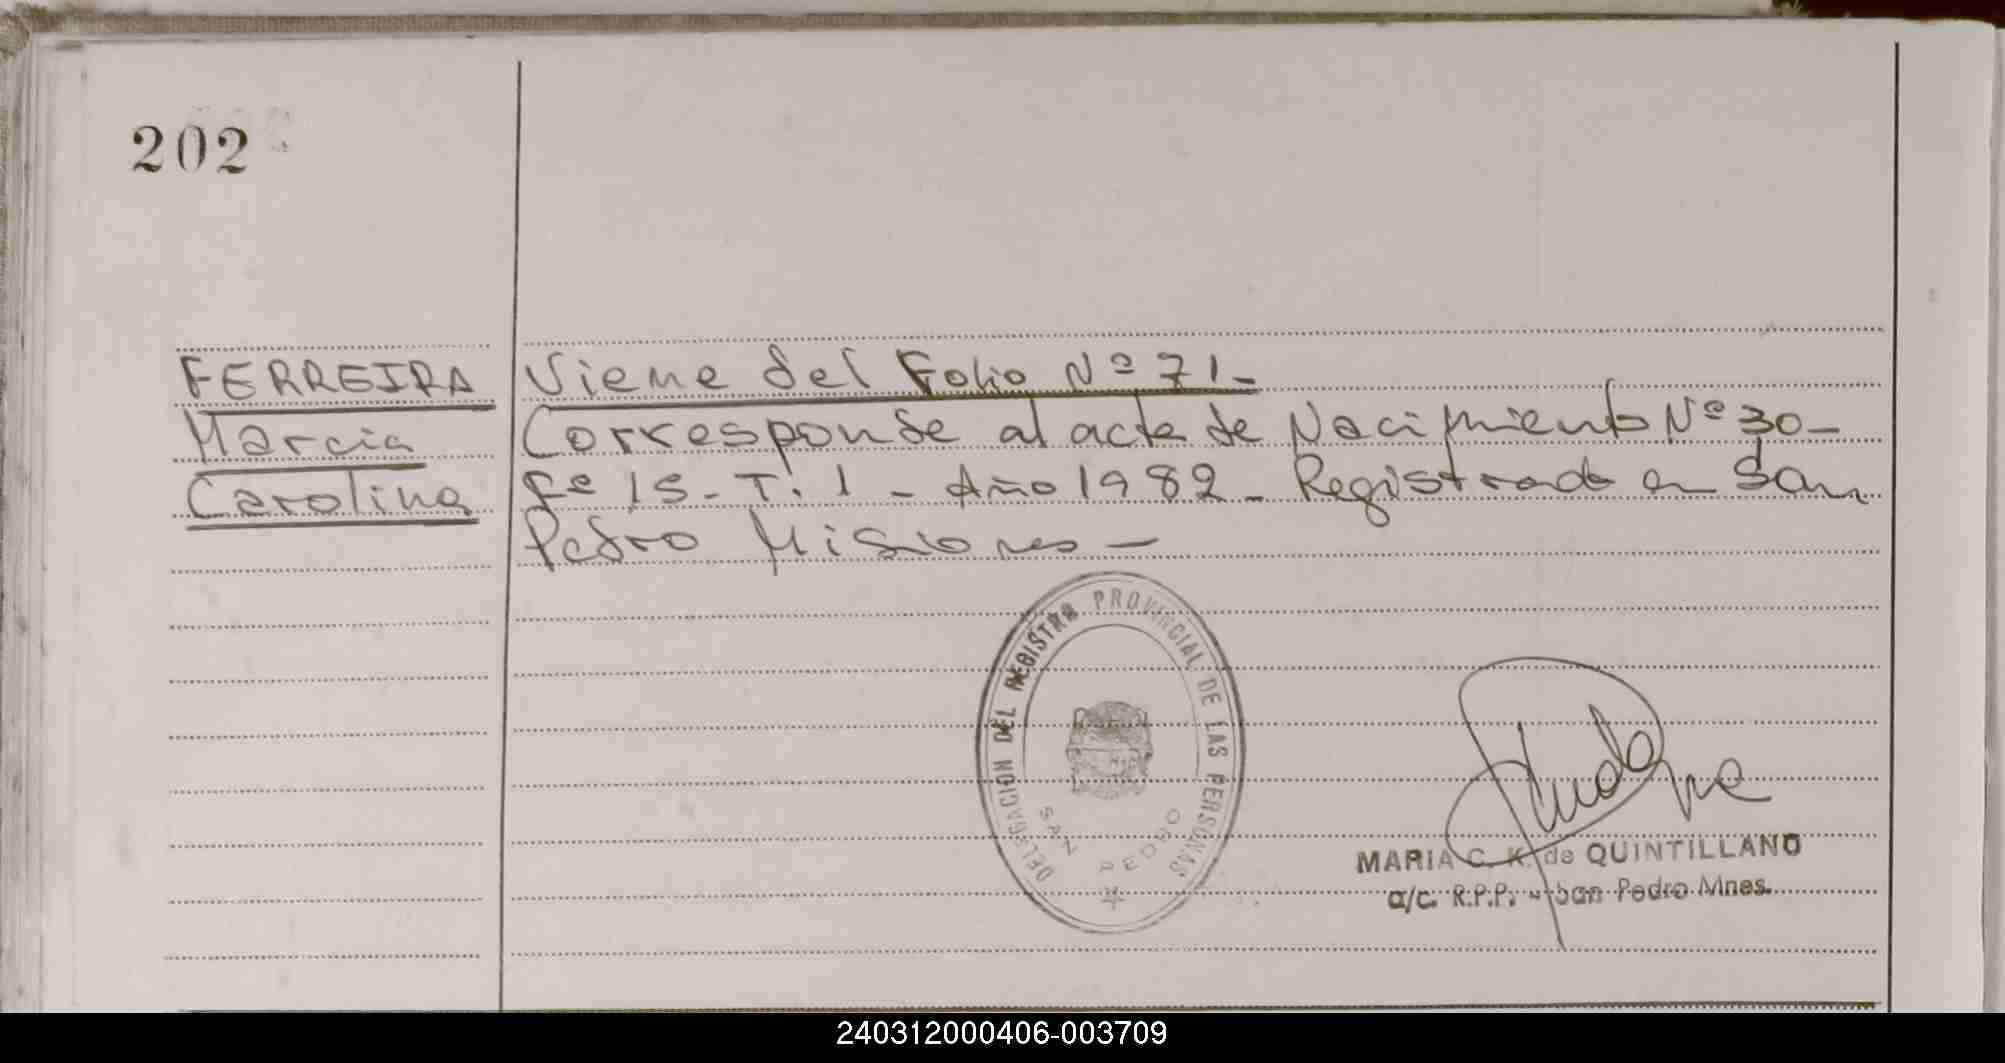 202
FERREIRA
Marcia
Carolina
Viene del Folio Nº 71-
Corresponde al acta de Nacimiento Nº 30-
Fº 15- T. 1 - Año 1982 - Registrada en San
Pedro Misiones -
DELEGACION DEL REGISTRO PROVINCIAL DE LAS PERSONAS
SAN PEDRO
MARIA C. K. de QUINTILLANO
a/c. R.P.P. - San Pedro Mnes.
240312000406-003709